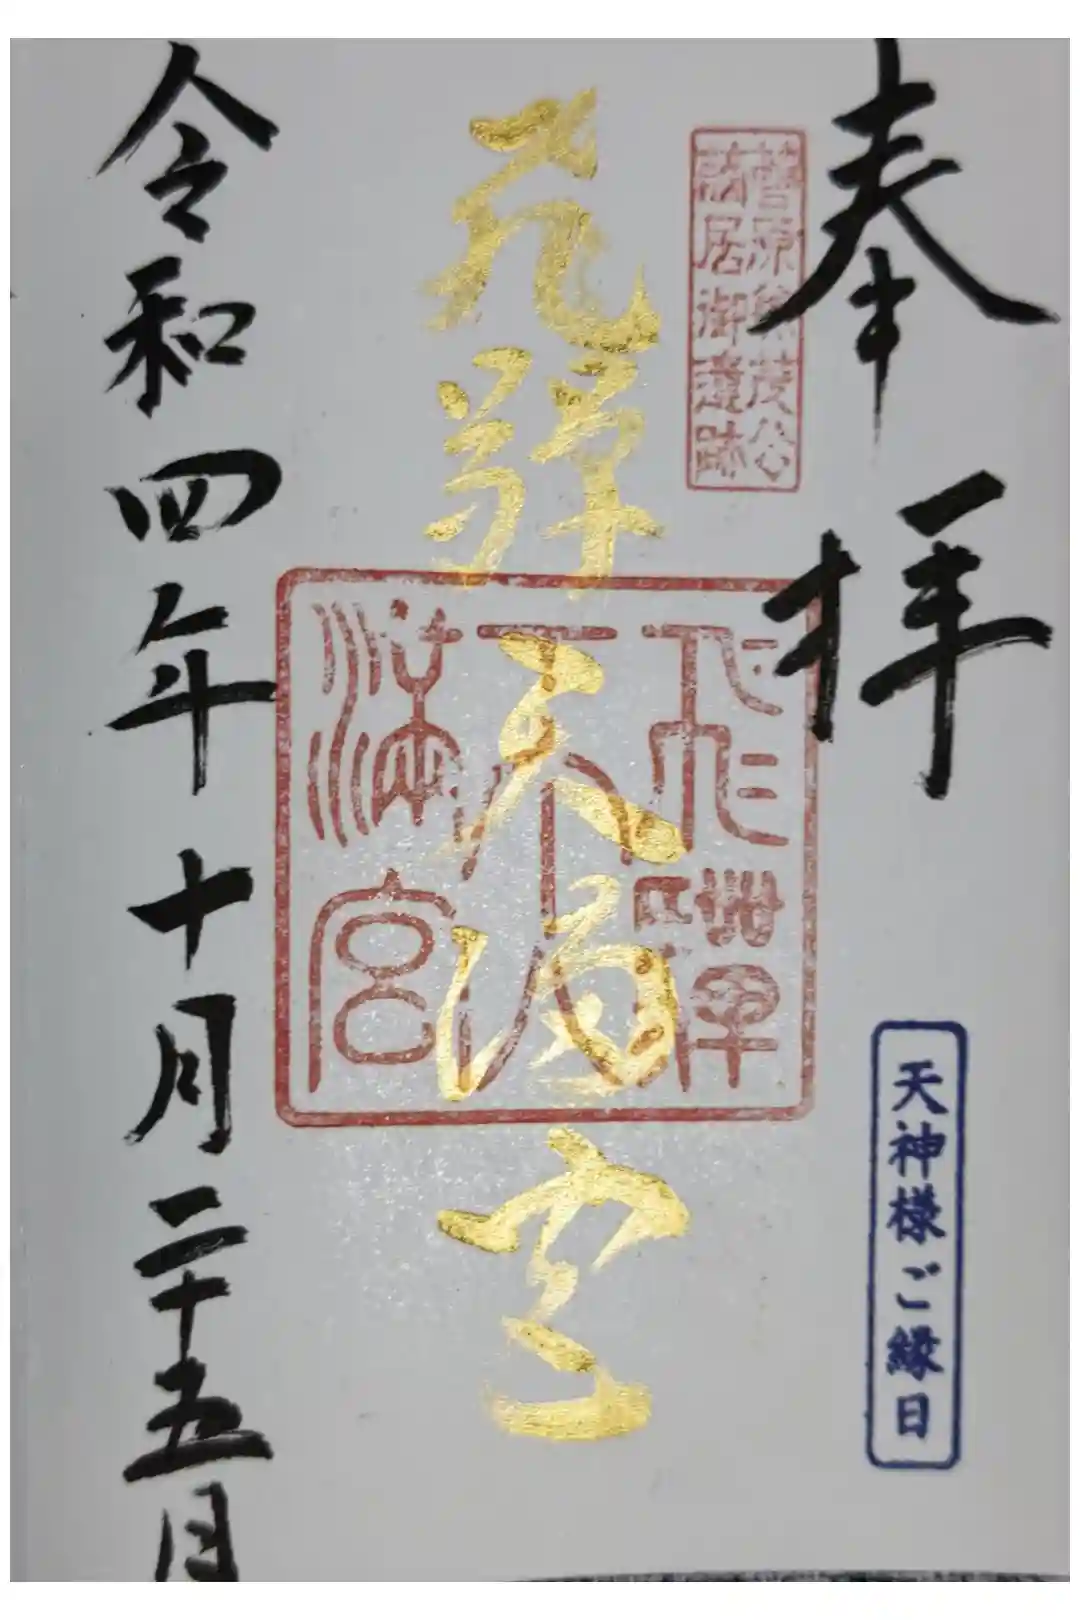 奉拝
菅原景茂公
謫居御遺跡
天神様ご縁日
飛騨天満宮
飛騨天満宮
令和四年十月二十五日